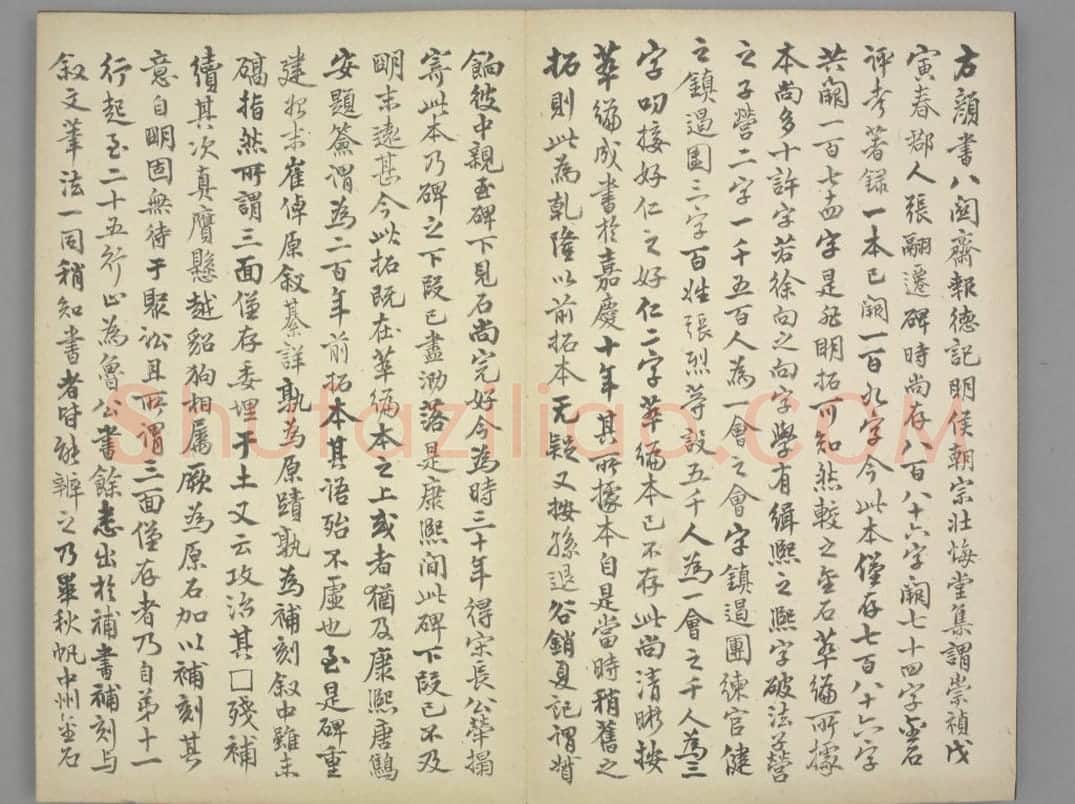 方顏書八關齋報德記明侯朝宗壯悔堂集謂崇禎戊
寅春鄰人張翮遷碑時尚存八百八十六字闕七十四字金石
評考著錄一本已闕一百九字今此本僅存七百八十六字
共闕一百七十四字是非明拓可知然較之金石萃編所據
本尚多十許字若徐向之向字學有緝熙之熙字破法子營
之子營二字一千五百人為一會之會字鎮遏團練官健
之鎮遏團三字百姓張烈等設五千人為一會之千人為三
字叨接好仁之好仁二字萃編本已不存此尚清晰按
萃編成書於嘉慶十年其所據本自是當時稍舊之
拓則此為乾隆以前拓本无疑又按孫退谷銷夏記謂
餉彼中親至碑下見石尚完好今為時三十年得宋長公犖搨
寄此本乃碑之下段已盡泐落是康熙間此碑下段已不及
明末遠甚今此拓既在萃編本之上或者猶及康熙唐鷦
安題簽謂為二百年前拓本其語殆不虛也至是碑重
建始末崔倬原敘綦詳孰為原蹟孰為補刻敘中雖未
礄指然所謂三面僅存委埋于土又云攻治其□殘補
續其次真贗懸越貂狗相屬厥為原石加以補刻其
意自明固無待于聚訟且所謂三面僅存者乃自第十一
行起至二十五行止為魯公書餘悉出於補書補刻與
敘文筆法一同稍知書者皆能辨之乃畢秋帆中州金石
Shufaziliao.COM